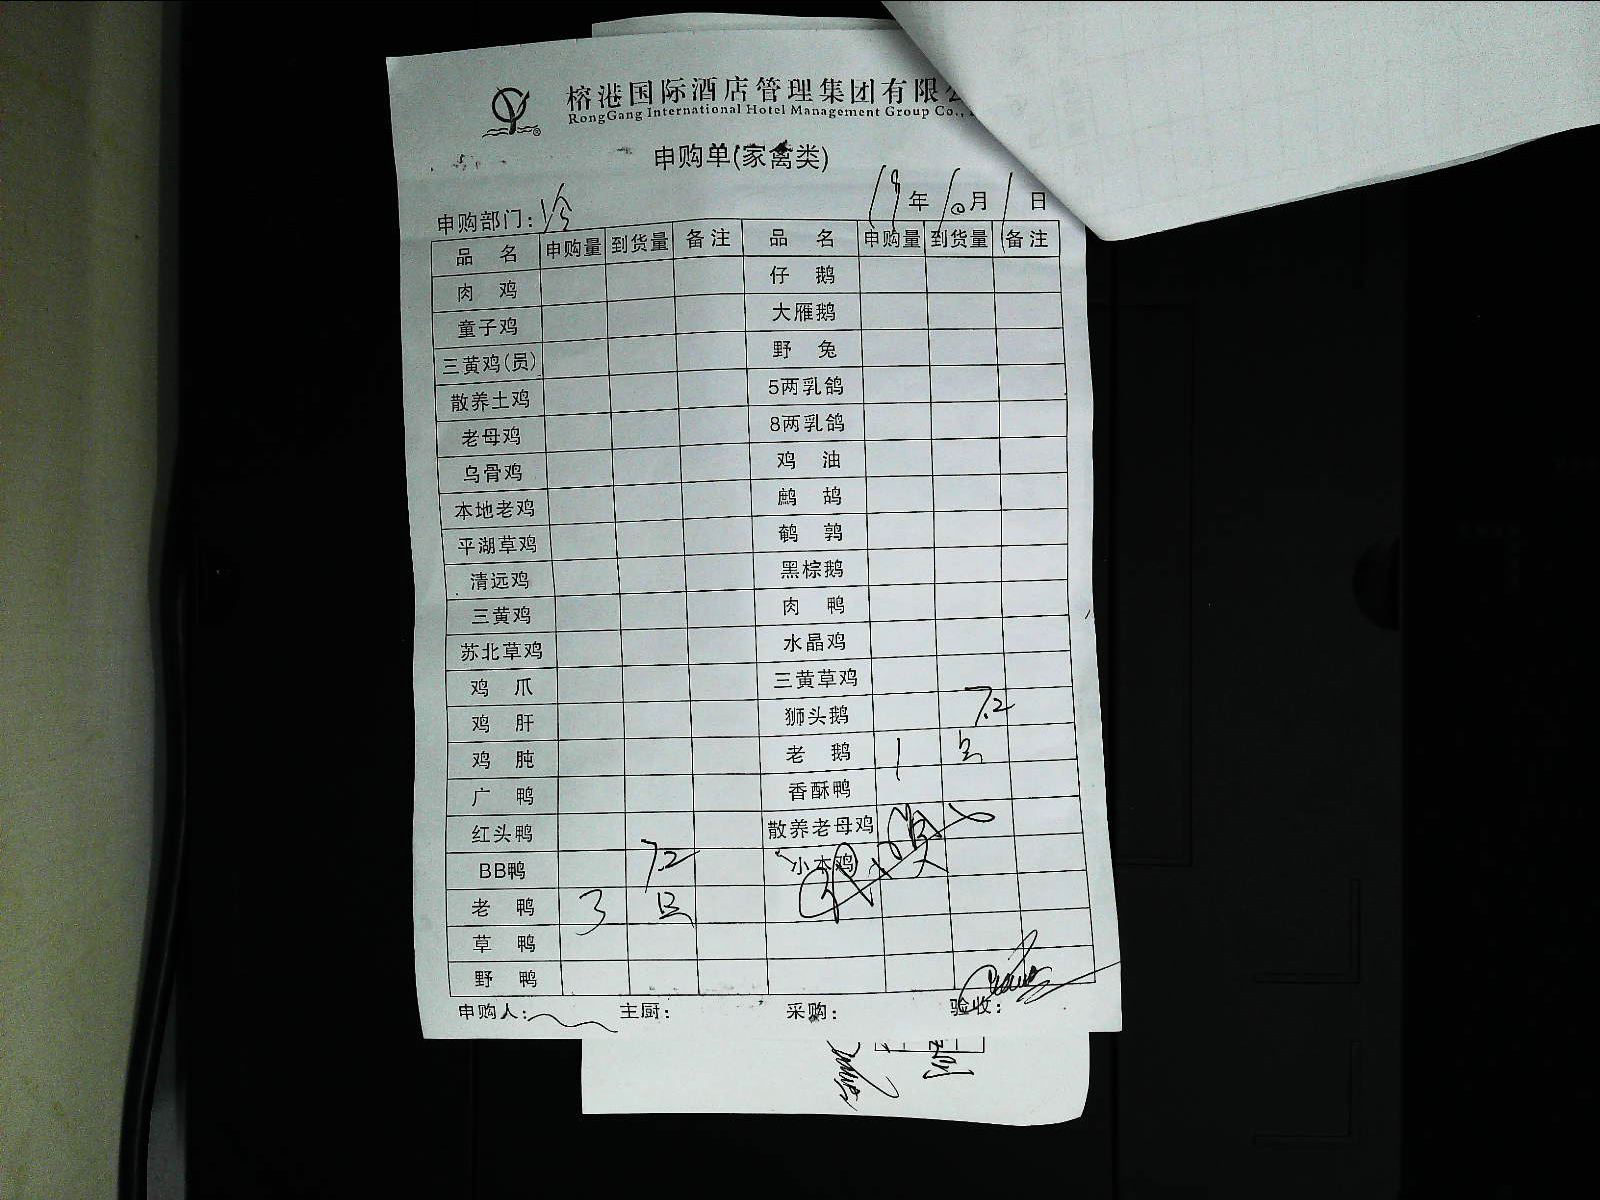 榕港国际酒店管理集团有限
RongGang International Hotel Management Group Co.,
申购单(家禽类)
申购部门：冷 19年10月1日
品名 申购量 到货量 备注 品名 申购量 到货量 备注
肉鸡 仔鹅
童子鸡 大雁鹅
三黄鸡(员) 野兔
散养土鸡 5两乳鸽
老母鸡 8两乳鸽
乌骨鸡 鸡油
本地老鸡 鹧鸪
平湖草鸡 鹌鹑
清远鸡 黑棕鹅
三黄鸡 肉鸭
苏北草鸡 水晶鸡
鸡爪 三黄草鸡
鸡肝 狮头鹅 7.2
鸡肫 老鹅 1
广鸭 香酥鸭
红头鸭 散养老母鸡
BB鸭 7.2 小本鸡
老鸭 3
草鸭
野鸭
申购人： 主厨： 采购： 验收：